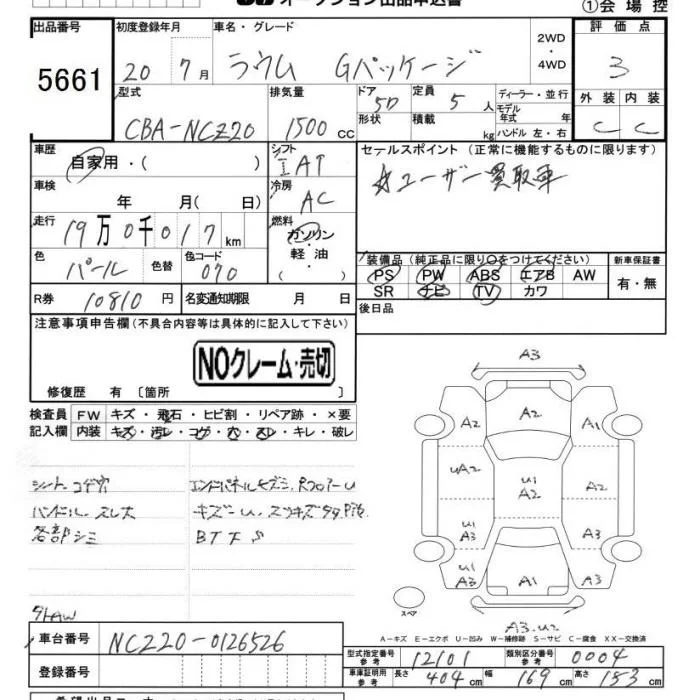 オークション出品申込書
①会場控
出品番号 初度登録年月 車名・グレード 2WD ・ 4WD 評価点
5661 20年7月 ラウム Gパッケージ 3
型式 排気量 ドア 5D 定員 5人 ディーラー・並行 外装 内装
CBA-NCZ20 1500cc 形状 積載 kg モデル年式 年 ハンドル 左・右 C C
車歴 シフト セールスポイント (正常に機能するものに限ります)
自家用・( ) IAT ☆ユーザー買取車
車検 年 月( 日) 冷房 AC
走行 19万0千017km 燃料 ガソリン・軽油・( )
色 パール 色替 色コード 070
装備品 (純正品に限り○をつけてください) 新車保証書
PS PW ABS エアB AW 有・無
SR ナビ TV カワ
R券 10810円 名変通知期限 月 日 後日品
注意事項申告欄(不具合内容等は具体的に記入して下さい)
NOクレーム・売切
修復歴 有 〔箇所 〕
検査員 FW キズ・飛石・ヒビ割・リペア跡・×要
記入欄 内装 キズ・汚レ・コゲ・穴・スレ・キレ・破レ
シート コゲ穴
ハンドル スレ大
各部シミ
BTFS
A3
A2 A2 A1
UA2 U1 A2 A2
U1 A3 A3
U1 A3 A1 A3
スペア
A3.U2
A-キズ E-エクボ U-凹み W-補修跡 S-サビ C-腐食 XX-交換済
車台番号 NCZ20-0126526
型式指定番号 参考 12101 類別区分番号 参考 0004
登録番号 車庫証明用 参考 長さ 404cm 幅 169cm 高さ 153cm